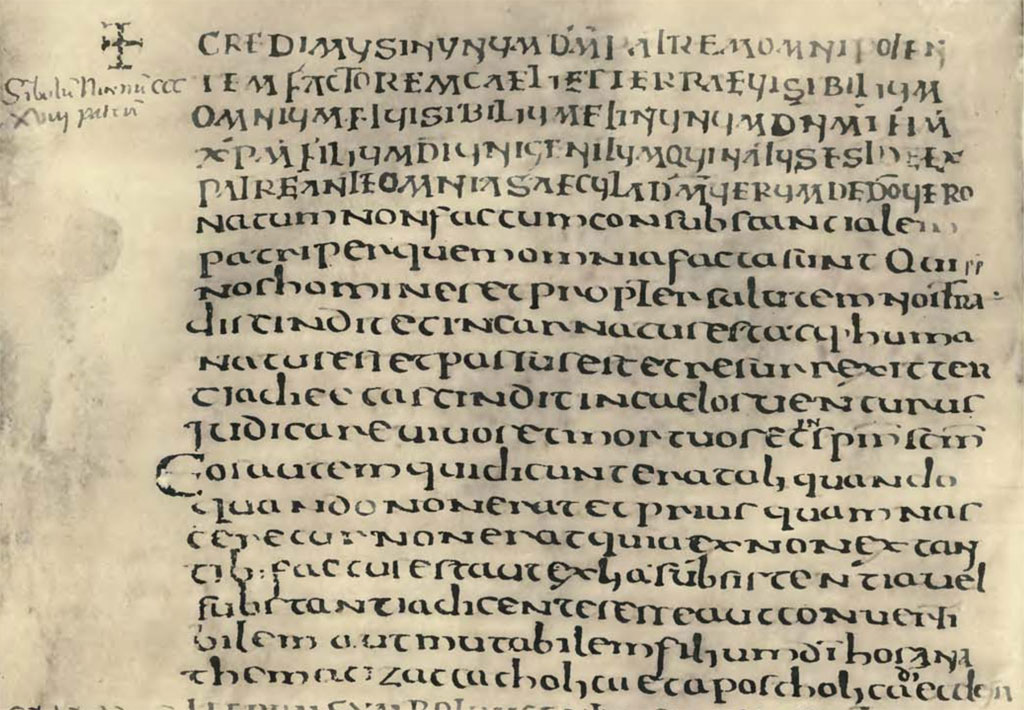 CREDIMUS IN UNUM DM PATREM OMNIPOTEN
TEM FACTOREM CAELI ET TERRAE UISIBILIUM
OMNIUM ET IUISIBILIUM ET IN UNUM DNM IHM
XPM FILIUM DI UNIGENITUM QUI NATUS EST ID E EX
PATRE ANTE OMNIA SAECULA DM UERUM DE DO UERO
natum non factum consubstancialem
patri per quem omnia facta sunt Qui pp
nos homines et propter salutem nostra
discindit et incarnatus est atq; huma
natus est et passus est et resurrexit ter
tia die et ascindit in caelos uenturus
iudicare uiuos et mortuos et in spm scm
Eos autem qui dicunt erat aliquando
quando non erat et prius quam nas
ceretur non erat quia ex non extan
tib: factus est aut ex ha subsistentia uel
substantia dicentes esse aut conuerti
bilem aut mutabilem filium di hos ana
themati zat catholica et apostholica